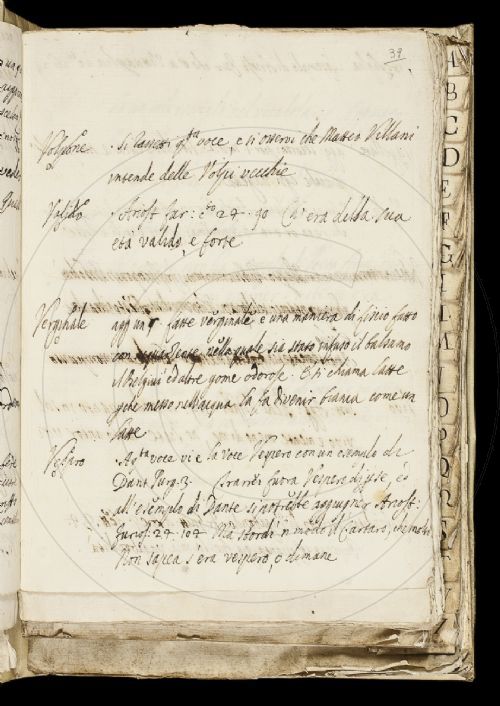 39
Volpone . Si [...] q.ta voce, e si osservi che Matteo Villani
intende delle Volpi vecchie
Valido . Ariost. fur: c.to 24. 90 Ch'era della sua
età valido, e forte
Verginale aggiung. latte verginale è una maniera di liscio fatto
con nella quale sia stato infuso il balsamo
il Belgiuì ed altre gome odorose. E si chiama latte
messo nell'acqua la fa divenir bianca come un
latte
Vespro . A q.ta voce vi è la voce Vespero con un esempio di
Dant. Purg. 3. fuora Vespero
all'esempio di Dante si potrebbe aggiugner Ariost:
furios. 24. 102 Ma stordì in modo il Tartaro, che molto
Non sapea s'era vespero, o dimane
A
B
C
D
E
F
G
I
L
M
N
O
P
Q
R
S
V
Z